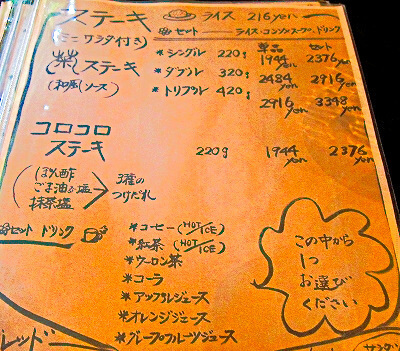 ステーキ ライス 216yen
(ミニワラダ付き) セット ライス・コンソメスープ・ドリンク
単品 セット
*シングル 220g 1944yen 2376yen
ステーキ *ダブル 320g 2484yen 2916yen
(和風ソース) *トリプル 420g 2916yen 3348yen
コロコロ
ステーキ 220g 1944yen 2376yen
ぽん酢
ごま油&塩
抹茶塩
3種の
つけだれ
セットドリンク
*コーヒー(HOT/ICE)
*紅茶(HOT/ICE)
*ウーロン茶
*コーラ
*アップルジュース
*オレンジジュース
*グレープフルーツジュース
この中から
1つ
お選び
ください
レッド